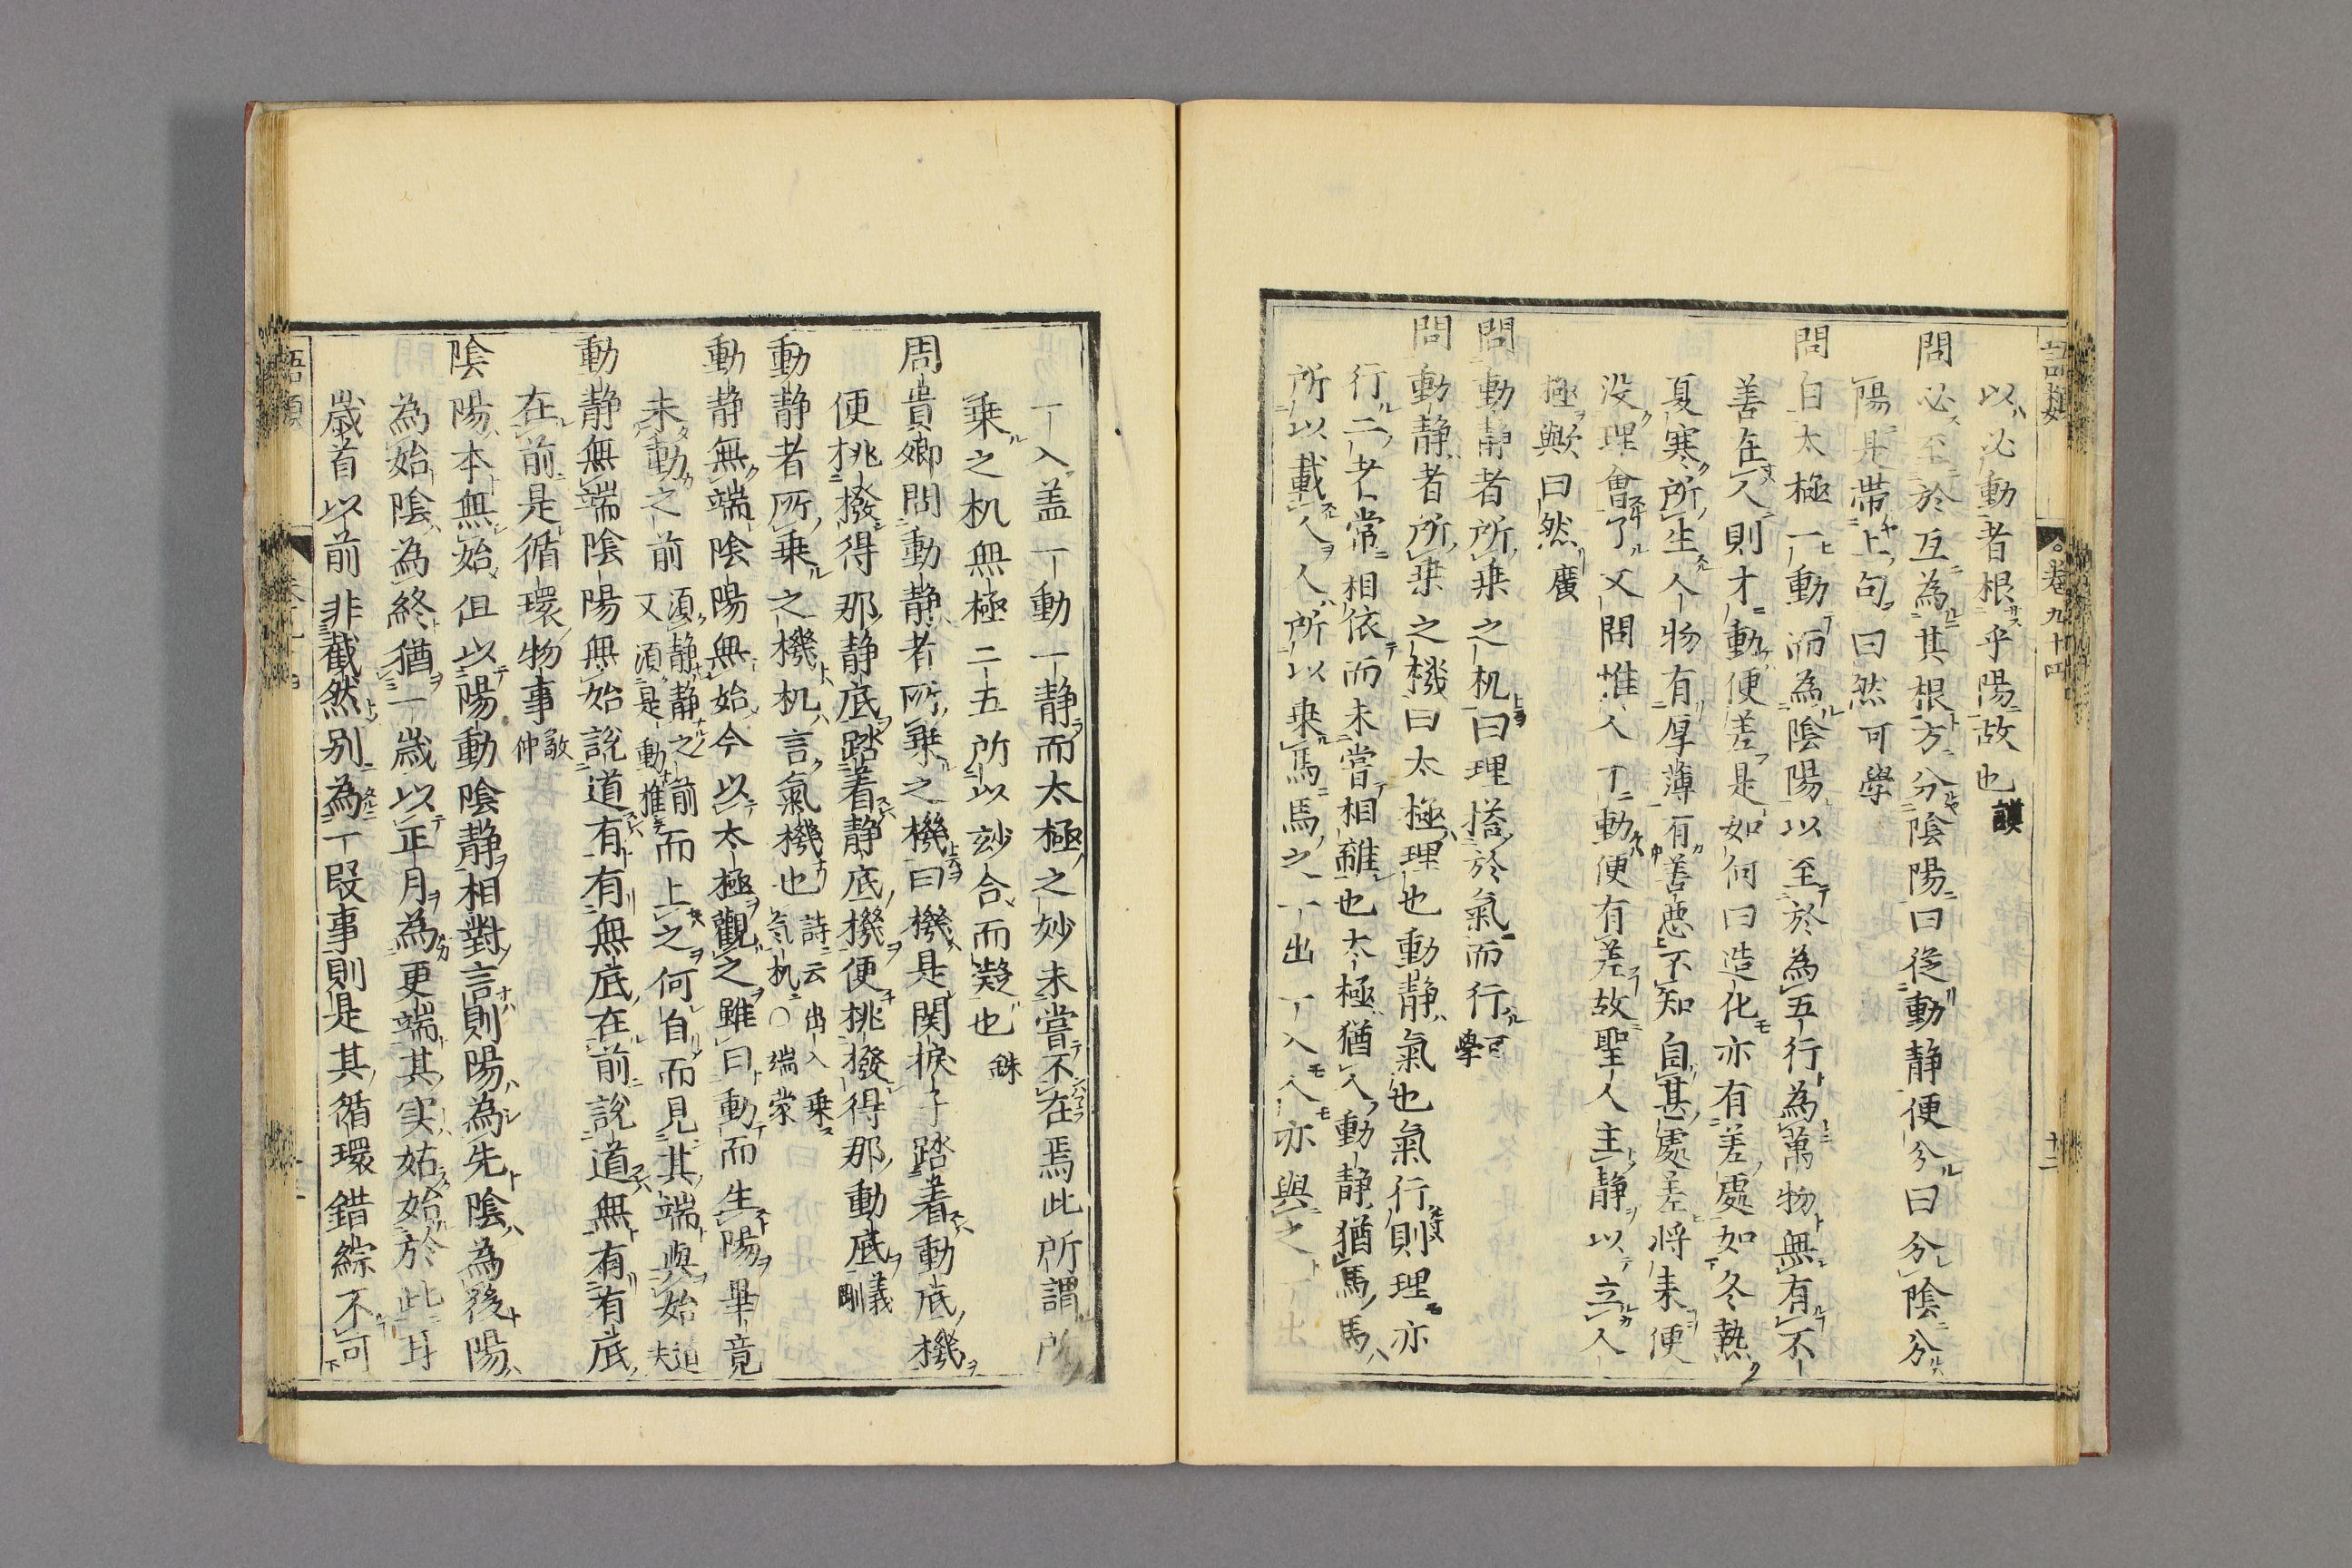 語類
卷九十四
十二
以必動者根乎陽故也 謨
問必至於互為其根方分陰陽曰從動靜便分曰分陰分
陽是帶上句曰然可學
問自太極一動而為陰陽以至於為五行為萬物無有不
善在人則才動便差是如何曰造化亦有差處如冬熱
夏寒所生人物有厚薄有善惡不知自甚處差將來便
没理會了又問惟人丅動便有差故聖人主靜以立人
極歟曰然 廣
問動靜者所乗之机曰理搭於氣而行 可學
問動靜者所乗之機曰太極理也動靜氣也氣行則理亦
行二者常相依而未嘗相離也太極猶人動靜猶馬馬
所以載人人所以乗馬馬之一出丅入人亦與之丅出
丅入盖丅動一靜而太極之妙未嘗不在焉此所謂所
乗之机無極二五所以玅合而凝也 銖
周貴卿問動靜者所乗之機曰機是関捩子踏著動底機
便挑撥得那靜底踏著靜底機便挑撥得那動底 義剛
動靜者所乗之機机言氣機也 詩云出入乗氣机〇端蒙
動靜無端陰陽無始今以太極觀之雖曰動而生陽畢竟
未動之前須靜靜之前又須是動推而上之何自而見其端與始 道夫
動靜無端陰陽無始說道有有無底在前說道無有有底
在前是循環物事 敬仲
陰陽本無始但以陽動陰靜相對言則陽為先陰為後陽
為始陰為終猶一歳以正月為更端其实姑始於此耳
歳首以前非截然别為丅叚事則是其循環錯綜不可
語類